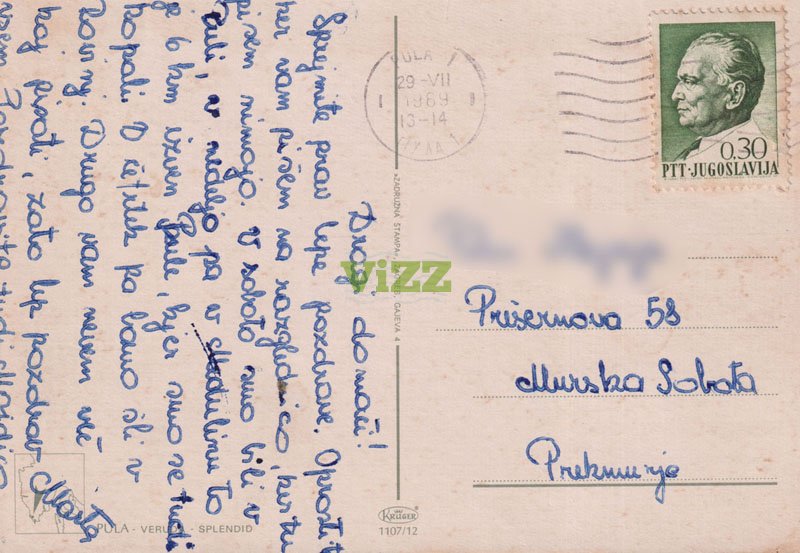 Dragi domači!
Sprejmite prav lepe pozdrave. Oprostit
ker vam pišem na razglednico, ker tu
pisem nimajo. V soboto smo bili v
Puli, v nedeljo pa v Medulinu to
je 6 km izven Pule, kjer smo se tudi
kopali. V četrtek pa bomo šli v
Rovinj. Drugo vam nevem več
kaj pisati, zato lep pozdrav Marta
Pozdravite tudi
PULA - VERUDA - SPLENDID
»ZADRUŽNA ŠTAMPA«, GAJEVA 4
KRÜGER
1107/12
ViZZ
PULA 1
29-VII
1969
13-14
0.30
PTT·JUGOSLAVIJA
Prešernova 58
Murska Sobota
Prekmurje